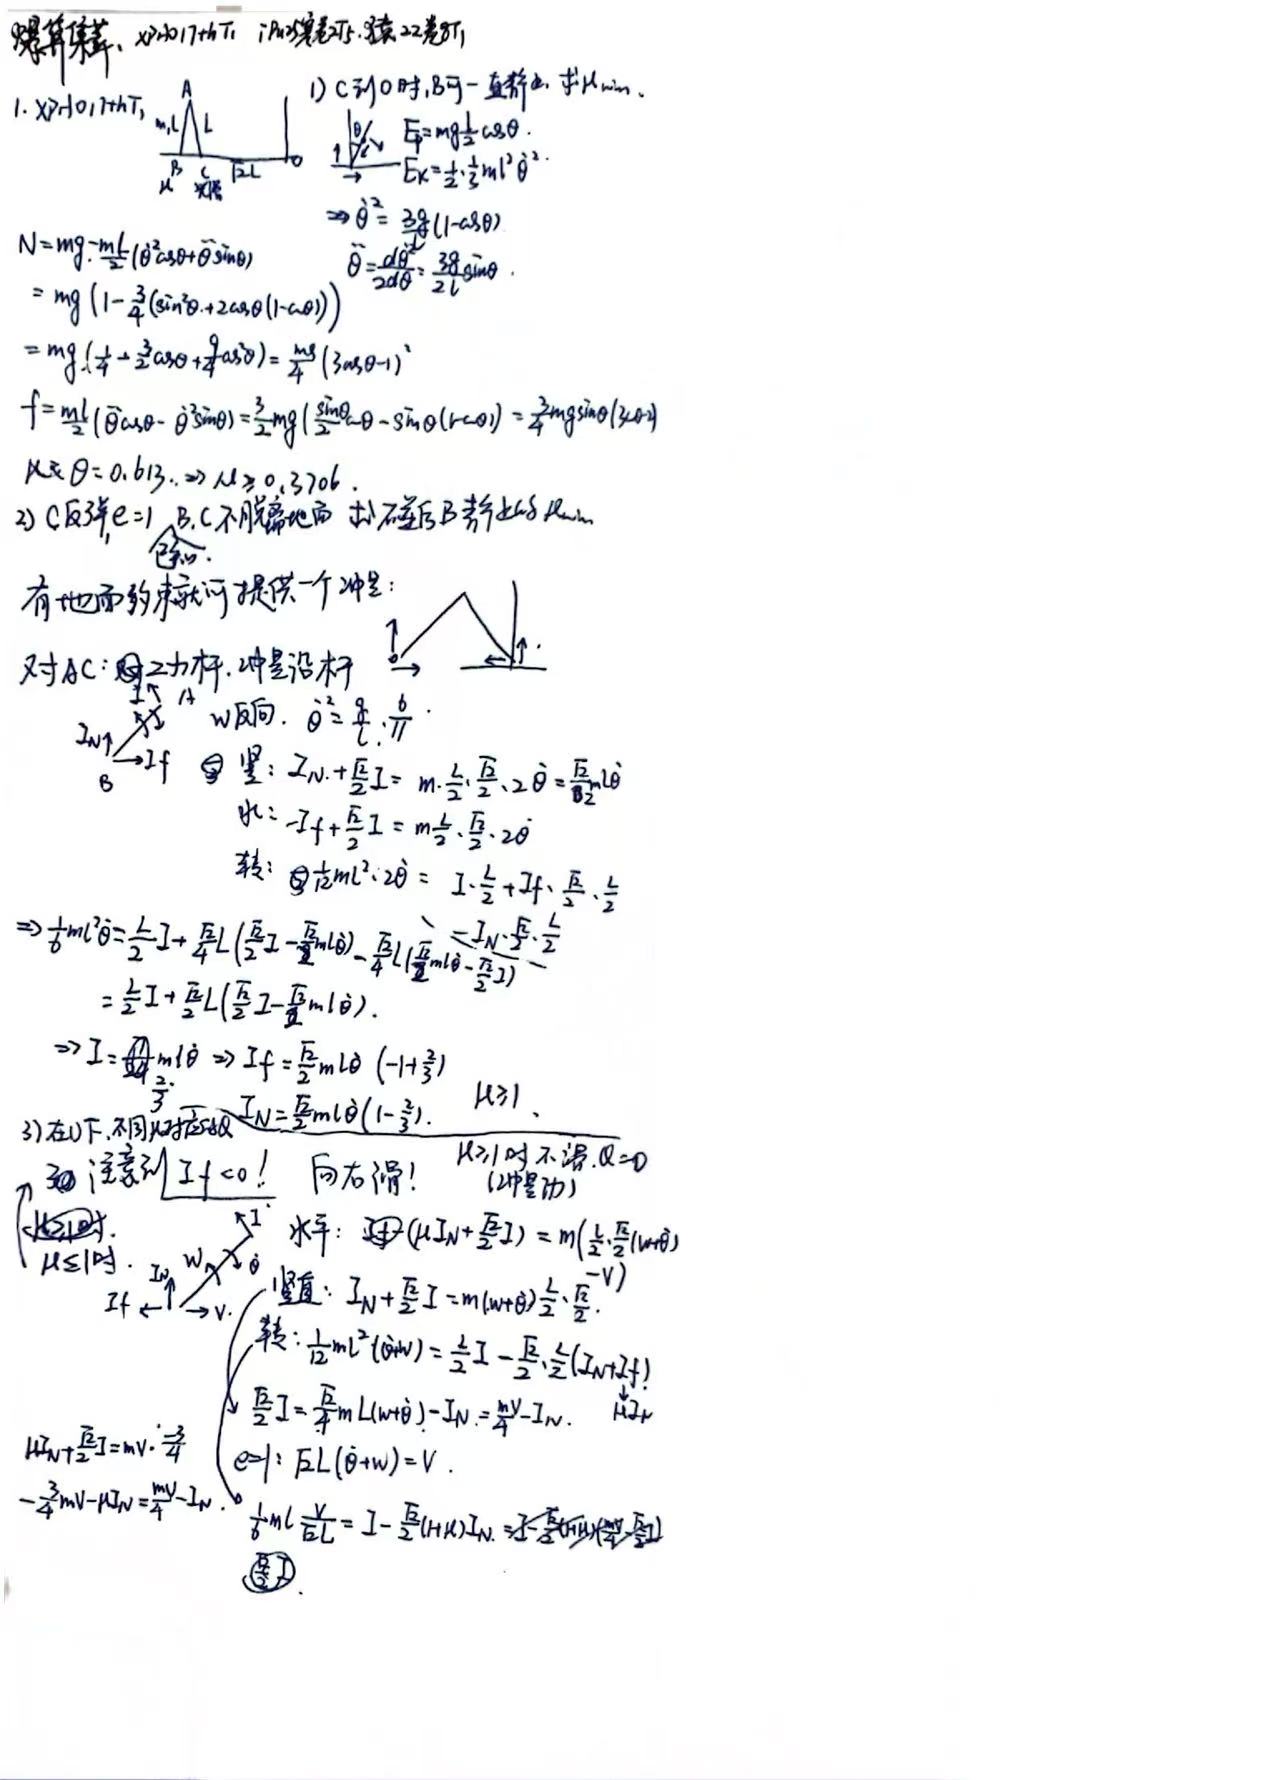 爆算集萃. XPhO17thT₁ iPhO5寒卷2T5. 22卷8T₁
1. XPhO17thT₁
A
m,L L
B C O
μ 光滑 √2L
1) C到O时,B可一直静止. 求μmin.
θ
Ep=mg L/2 cosθ.
Ek=1/2·1/3ml²θ̇².
⇒ θ̇²=3g/L(1-cosθ)
θ̈=dθ̇²/2dθ=3g/2L sinθ.
N=mg-mL/2(θ̇²cosθ+θ̈sinθ)
=mg(1-3/4(sin²θ+2cosθ(1-cosθ)))
=mg(1/4-3/2cosθ+9/4cos²θ)=mg/4(3cosθ-1)²
f=mL/2(θ̈cosθ-θ̇²sinθ)=3/2mg(sinθ/2 cosθ-sinθ(1-cosθ))=3/4mgsinθ(3cosθ-2)
θ=0.613..⇒μ≥0.3706.
2) C反弹,e=1 B.C不脱离地面 求碰后B静止的μmin
有地面约束就可提供一个冲量:
对AC: 二力杆.冲量沿杆
I A
IN If
B
w反向. θ̇²=g/L·6/π.
竖: IN+√2/2I=m·L/2·√2/2·2θ̇=√2/2mlθ̇
水: -If+√2/2I=mL/2·√2/2·2θ̇
转: 1/12ml²·2θ̇=I·L/2+If·√2/2·L/2
-IN·√2/2·L/2
⇒1/6ml²θ̇=L/2I+√2/4L(√2/2I-√2/2mlθ̇)-√2/4L(√2/2mlθ̇-√2/2I)
=L/2I+√2/2L(√2/2I-√2/2mlθ̇).
⇒I=2/3mlθ̇⇒If=√2/2mLθ̇(-1+2/3)
IN=√2/2mlθ̇(1-2/3). μ≥1.
3) 在1)下.不同μ对应的Q
注意到If<0! 向右滑! μ≥1时不滑.Q=0
(冲量功)
μ≤1时.
I
IN w θ̇
If V.
水平: -(μIN+√2/2I)=m(L/2·√2/2(w+θ̇)
-V)
竖直: IN+√2/2I=m(w+θ̇)L/2·√2/2.
转: 1/12ml²(θ̇+w)=L/2I-√2/2·L/2(IN+If)
μIN
√2/2I=√2/4mL(w+θ̇)-IN=mV/4-IN.
μIN+√2/2I=mV·-3/4
e=1: √2L(θ̇+w)=V.
-3/4mV-μIN=mV/4-IN.
1/6ml V/√2L=I-√2/2(1+μ)IN.
√2/2I